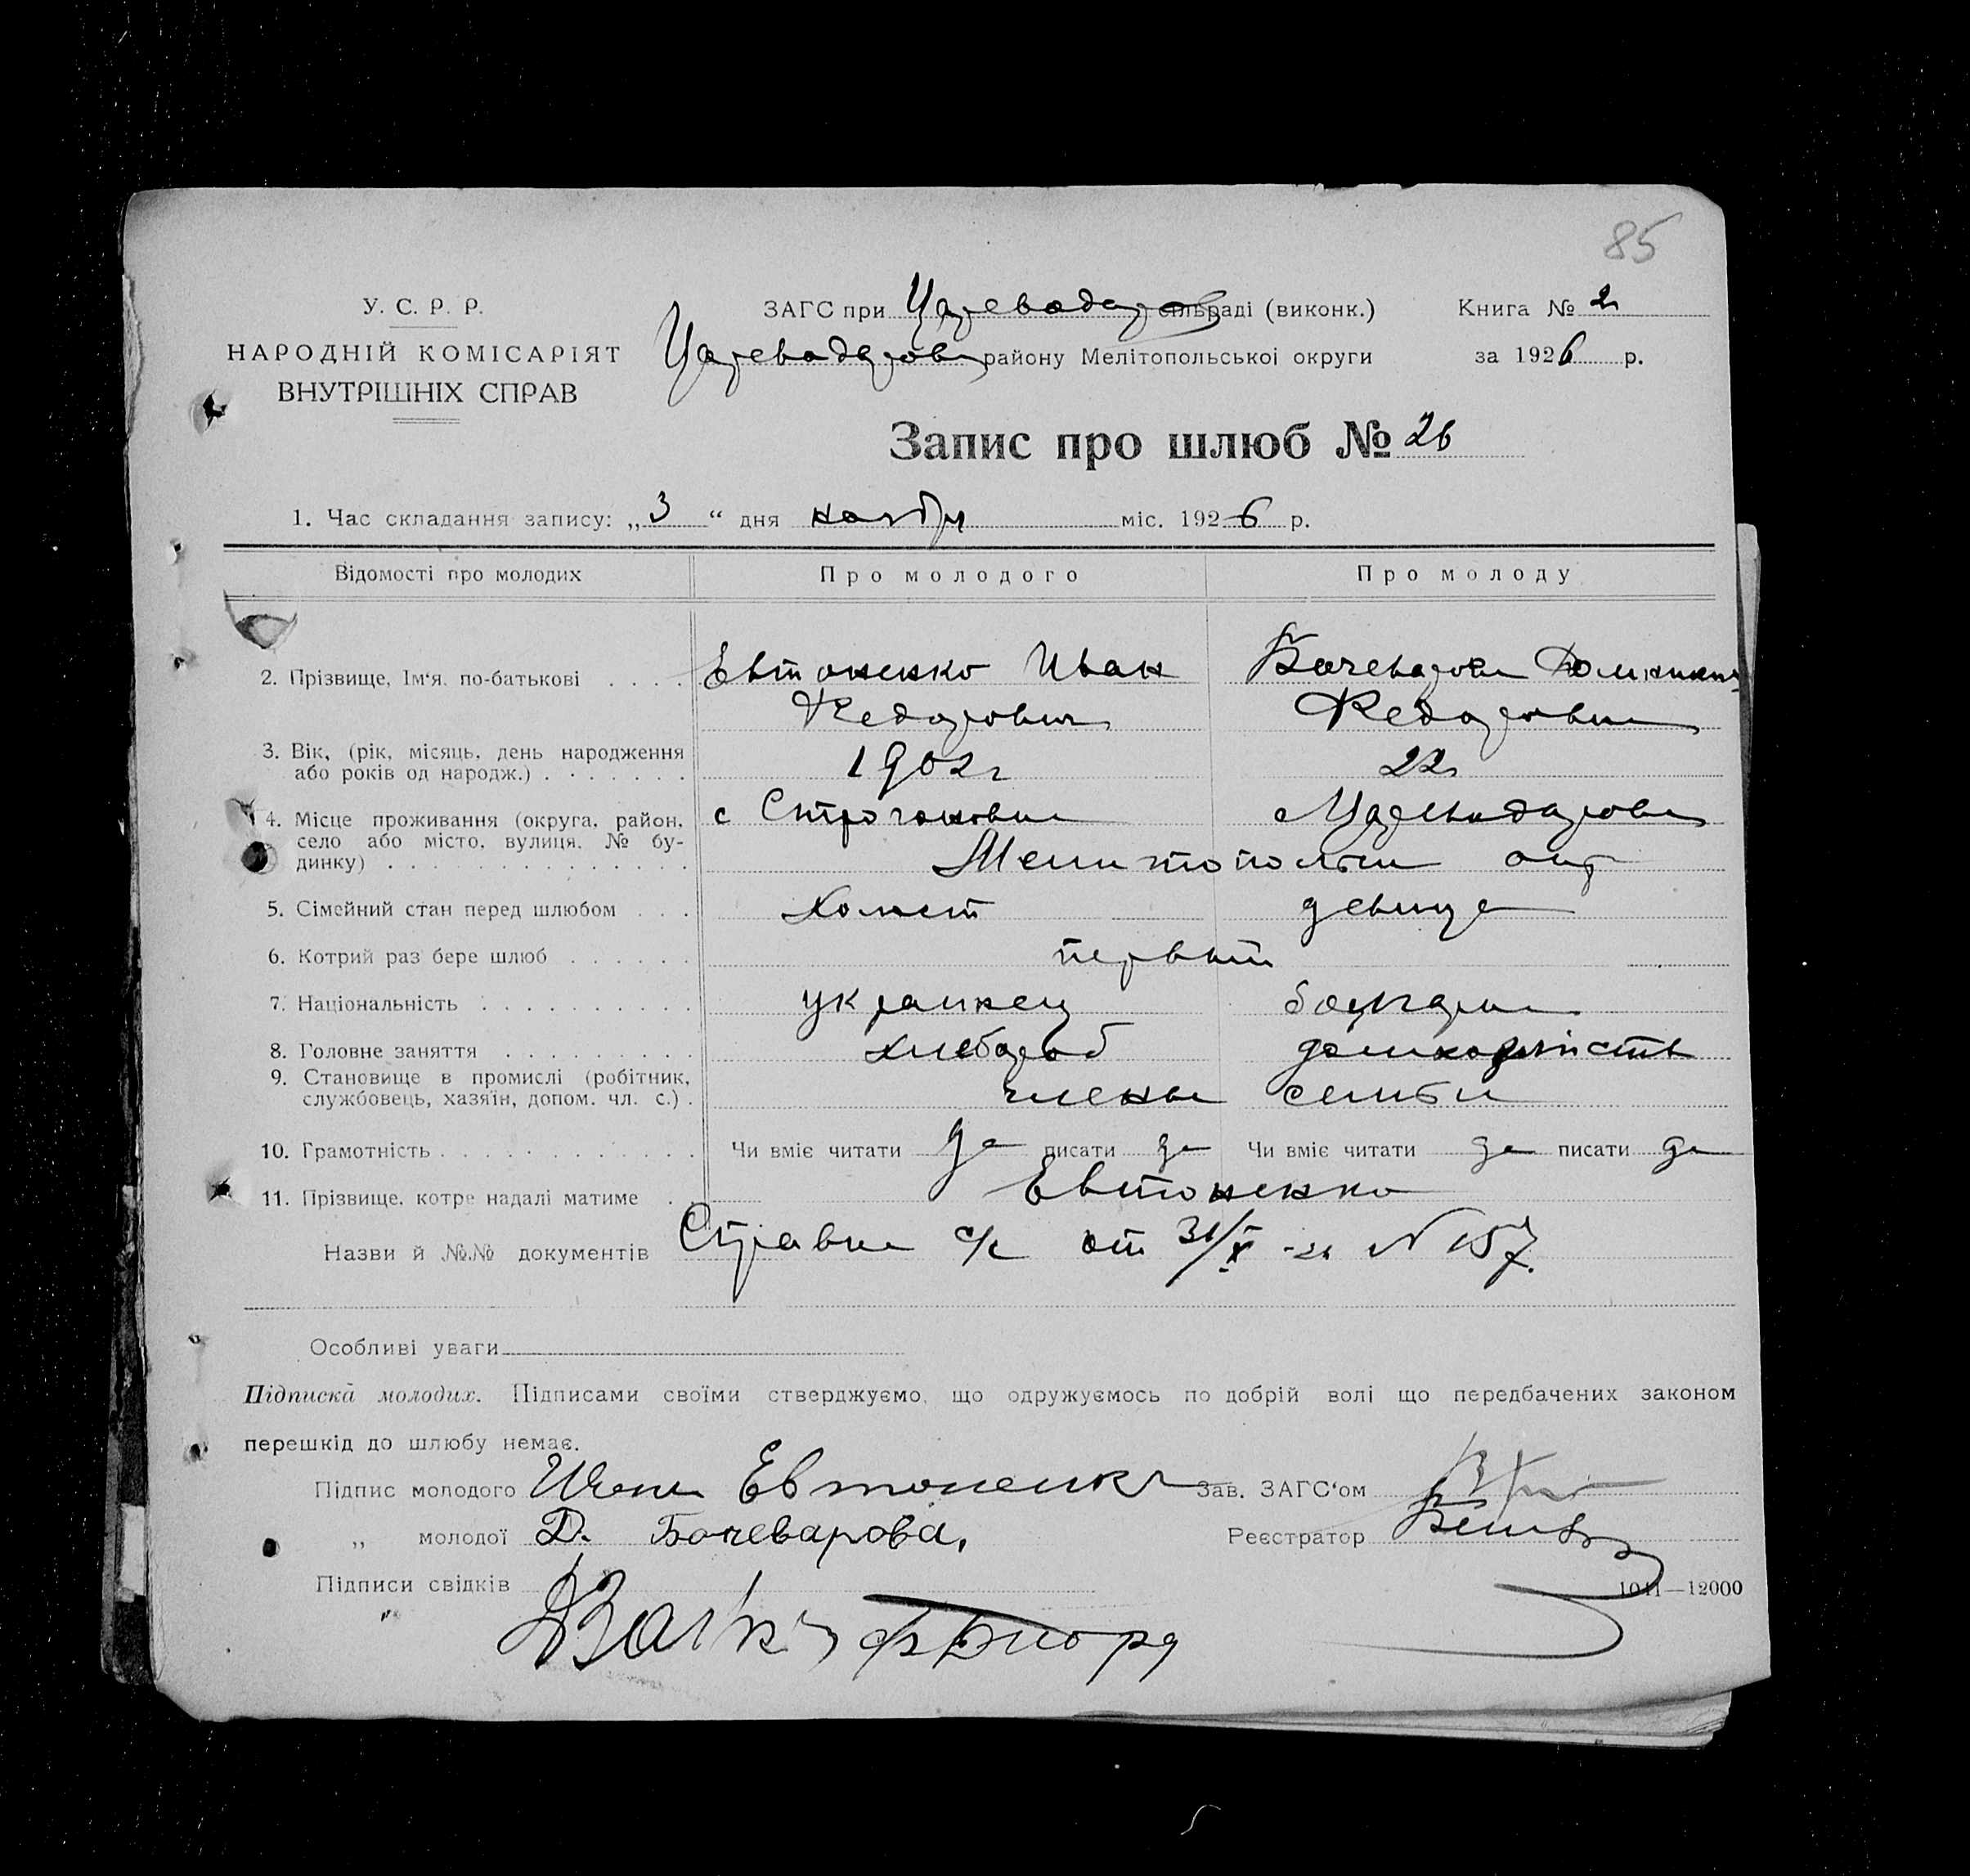 85
У. С. Р. Р.
НАРОДНІЙ КОМІСАРІЯТ
ВНУТРІШНІХ СПРАВ
ЗАГС при Царевода­ров сільраді (виконк.)
Цареводаров району Мелітопольської округи
Книга № 2
за 1926 р.
Запис про шлюб № 26
1. Час складання запису: „3“ дня ноября міс. 1926 р.
Відомості про молодих Про молодого Про молоду
2. Прізвище, Ім‘я, по-батькові . . . . Евтоненко Иван Бачеварова
Федорович Федоровна
3. Вік, (рік, місяць, день народження
або років од народж.) . . . . . . . 1902 г 22
4. Місце проживання (округа, район,
село або місто, вулиця, № бу-
динку) . . . . . . . . . . . . . .
с Строгановка с Цареводаровка
Мелитопольск окр
5. Сімейний стан перед шлюбом . . . Холост девица
6. Котрий раз бере шлюб . . . . . . первый
7. Національність . . . . . . . . . . украинец болгарка
8. Головне заняття . . . . . . . . . хлебороб
9. Становище в промислі (робітник,
службовець, хазяїн, допом. чл. с.) . члены семьи
10. Грамотність . . . . . . . . . . . . Чи вміє читати да писати да Чи вміє читати да писати да
11. Прізвище, котре надалі матиме . . Евтоненко
Назви й №.№ документів Справка с/с от 31/X -26 N 157.
Особливі уваги
Підписка молодих. Підписами своїми стверджуємо, що одружуємось по добрій волі що передбачених законом
перешкід до шлюбу немає.
Підпис молодого Иван Евтоненко Зав. ЗАГС‘ом
„ молодої Д. Бачеварова, Реєстратор
Підписи свідків
„
1041—12000